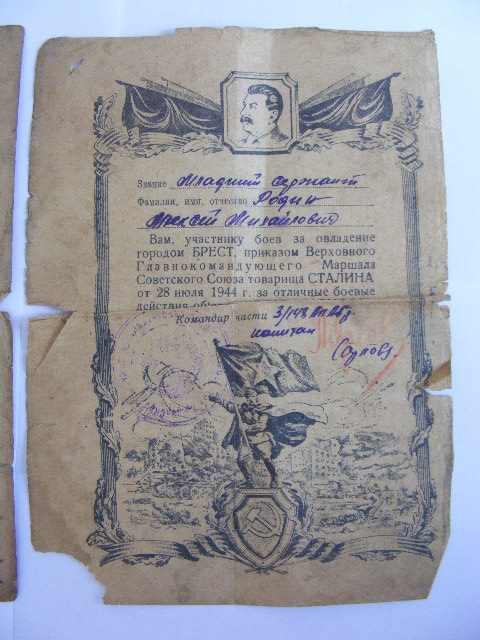 Звание Младший сержант
Фамилия, имя, отчество Родин
Алексей Михайлович
Вам, участнику боев за овладение
городом БРЕСТ, приказом Верховного
Главнокомандующего Маршала
Советского Союза товарища СТАЛИНА
от 28 июля 1944 г. за отличные боевые
действия
Командир части
капитан